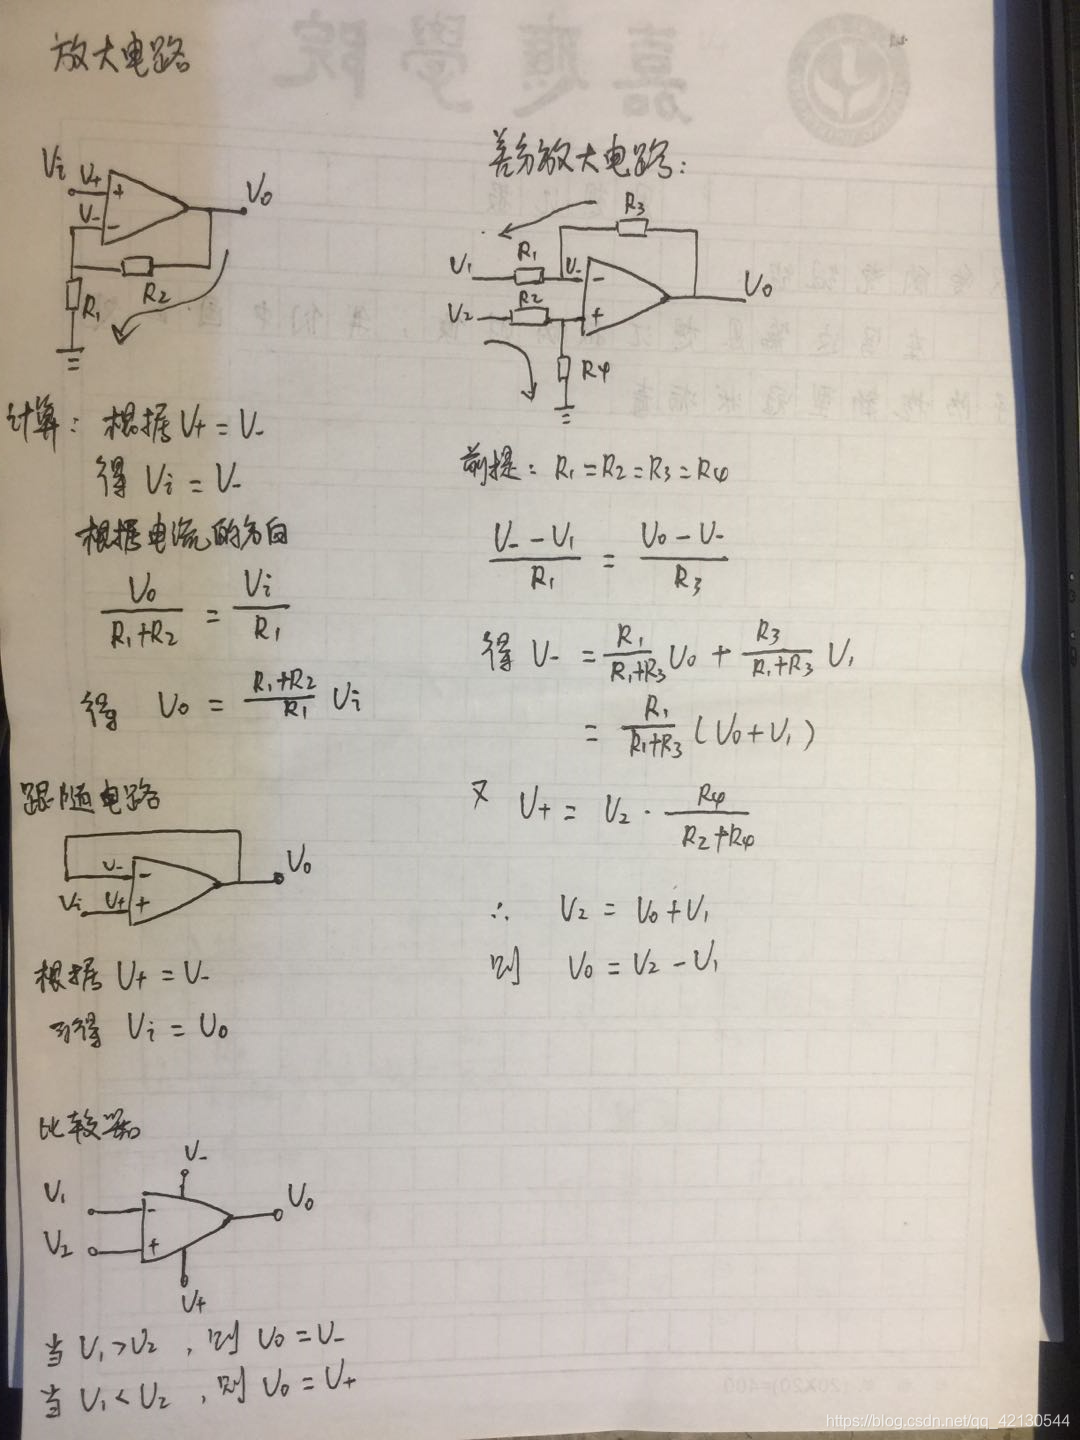 放大电路
Vi V+ + V- - V0
R2
R1
计算：根据 V+ = V-
得 Vi = V-
根据电流的方向
V0/(R1+R2) = Vi/R1
得 V0 = (R1+R2)/R1 Vi
跟随电路
V- - V0
Vi V+ +
根据 V+ = V-
可得 Vi = V0
比较器
V-
V1 - V0
V2 +
V+
当 V1 > V2 , 则 V0 = V-
当 V1 < V2 , 则 V0 = V+
差分放大电路：
R3
V1 R1 V- - V0
V2 R2 +
R4
前提：R1 = R2 = R3 = R4
(V- - V1)/R1 = (V0 - V-)/R3
得 V- = R1/(R1+R3) V0 + R3/(R1+R3) V1
= R1/(R1+R3) (V0 + V1)
又 V+ = V2 · R4/(R2+R4)
∴ V2 = V0 + V1
则 V0 = V2 - V1
嘉应学院
(20X20)=400
https://blog.csdn.net/qq_42130544